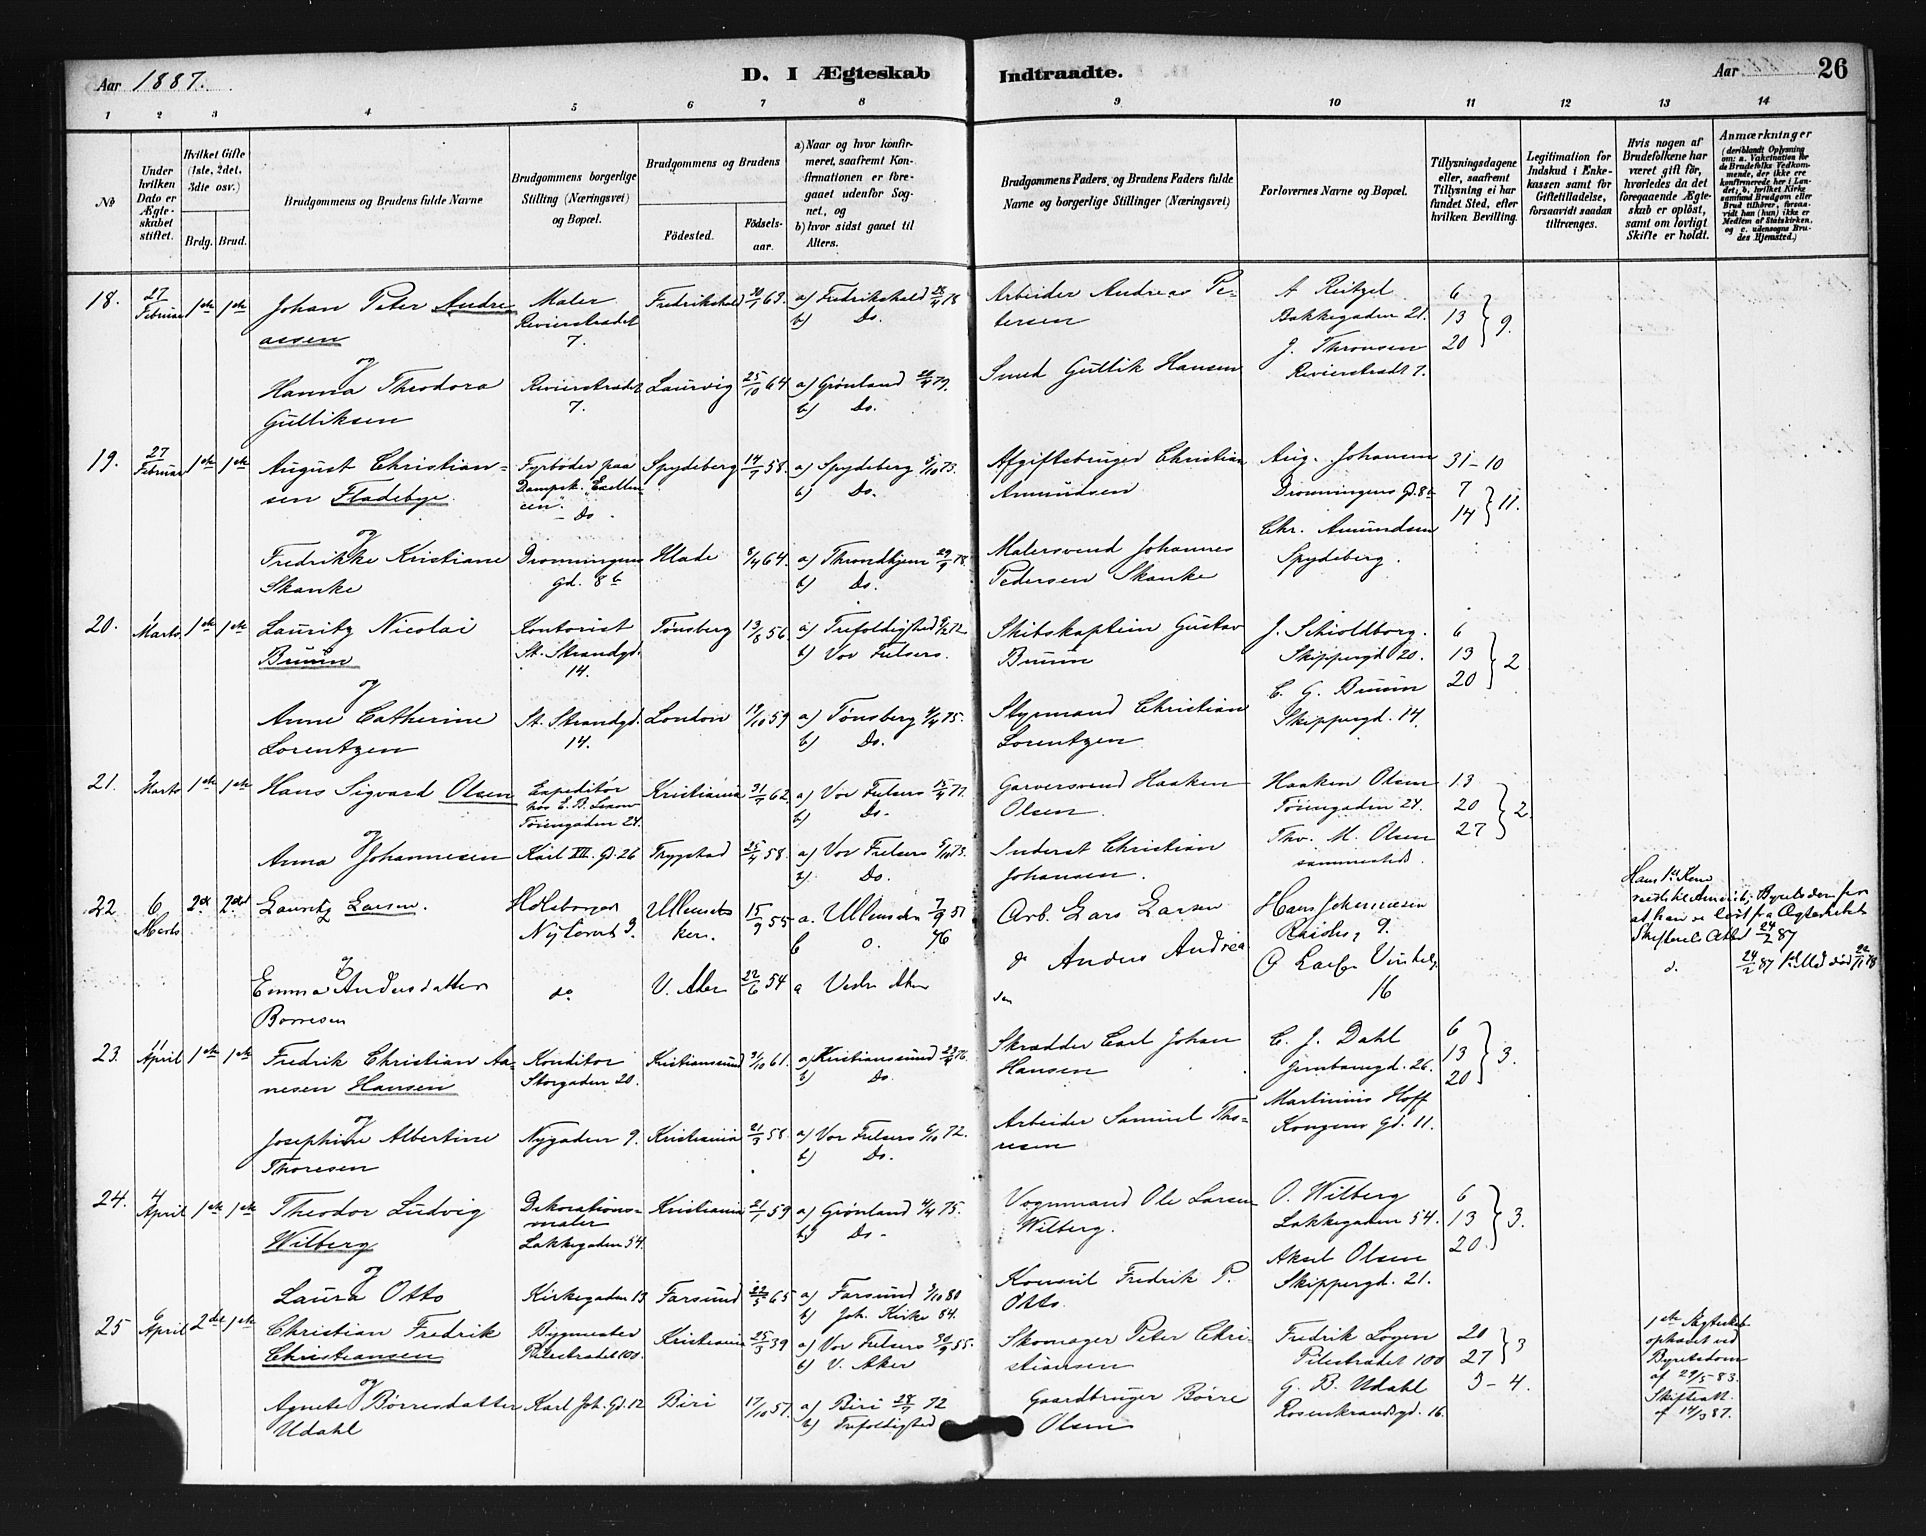 Aar 1887.
D. I Ægteskab
Indtraadte.
Aar
26
1 2 3 4 5 6 7 8 9 10 11 12 13 14
No
Under hvilken Dato er Ægteskabet stiftet.
Hvilket Gifte (1ste, 2det, 3die osv.)
Brdg. Brud.
Brudgommens og Brudens fulde Navne
Brudgommens borgerlige Stilling (Næringsvei) og Bopæl.
Brudgommens og Brudens
Fødested.
Fødselsaar.
a) Naar og hvor konfirmeret, saafremt Konfirmationen er foregaaet udenfor Sognet, og
b) hvor sidst gaaet til Alters.
Brudgommens Faders, og Brudens Faders fulde Navne og borgerlige Stillinger (Næringsvei)
Forlovernes Navne og Bopæl.
Tillysningsdagene eller, saafremt Tillysning ei har fundet Sted, efter hvilken Bevilling.
Legitimation for Indskud i Enkekassen samt for Giftetilladelse, forsaavidt saadan tiltrænges.
Hvis nogen af Brudefolkene har været gift før, hvorledes da det foregaaende Ægteskab er opløst, samt om lovligt Skifte er holdt.
Anmærkninger
(deriblandt Oplysning om: a. Vakcination for de Brudefolks Vedkommende, der ikke ere konfirmerede her i Landet; b. hvilket Kirkesamfund Brudgom eller Brud tilhører, forsaavidt han (hun) ikke er Medlem af Statskirken, og c. udensogns Brudes Hjemsted.)
18. 27 Februar 1ste 1ste Johan Peter Andreassen Maler Revierstrædet 7. Fredrikshald 20/1 63. a) Fredrikshald 28/4 78 b) Do. Arbeider Andreas Petersen A Reitzel Bakkegaden 21. J. Thronsen Revierstrædt 7. 6 13 20 } 9.
og
Hanna Theodora Gulliksen Revierstrædet 7. Laurvig 25/10 64 a) Grønland 20/4 79. b) Do. Smed Gullik Hansen
19. 27 Februar 1ste 1ste August Christiansen Fladebye. Fyrbøder paa Dampsk. "Excellencen". Do. Spydeberg 14/7 58. a) Spydeberg 5/10 73. b) Do. Afgiftsbruger Christian Amundsen Aug. Johansen Dronningens Gd. 8b Chr. Amundsen Spydeberg. 31-10 7 14 } 11.
og
Fredrikke Kristiane Skanke Dronningens gd. 8b Hlade 8/4 64. a) Throndhjem 29/9 78. b) Do. Malersvend Johannes Pedersen Skanke
20. 1 Marts 1ste 1ste Lauritz Nicolai Bruun Kontorist St. Strandgd. 14. Tønsberg 13/5 56. a) Trefoldighed 72 b) Vor Frelsers. Skibskaptein Gustav Bruun J. Schioldborg. Skippergd 20. C. G. Bruun Skippergd. 14. 6 13 20 } 2
og
Anne Catherine Lorentzen St. Strandgd. 14. London 19/10 59 a) Tønsberg 4/4 75. b) Do. Styrmand Christian Lorentzen
21. 2 Marts 1ste 1ste Hans Sigvard Olsen Expeditør hos E. B. Tøiengaden 24. Kristiania 31/7 62. a) Vor Frelsers 15/4 77. b) Do. Garversvend Haaken Olsen. Haakon Olsen Tøiengaden 24. Thv. M. Olsen sammesteds. 13 20 27 } 2.
og
Anna Johannesen Karl XII. Gd. 26 Trygstad 25/4 58. a) Vor Frelsers 5/10 73. b) Do. Inderst Christian Johansen.
22 6 Marts 2det 2det Lauritz Larsen. Nytorvet 9. Ullensaker. 15/9 55 a. Ullensaker 7/9 51 b o. 76 Arb. Lars Larsen Hans Johannesen 9.
24/2 87
og
Emma Andersdatter Borresen do V. Aker 22/6 54 a Vestre Aker d Anders Andrea 16 d. 24/2 87 død 22/11 78
23. 11 April 1ste 1ste Fredrik Christian Aanesen Hansen Konditor Storgaden 20. Kristianssund 3/10 61. a) Kristianssund 23/4 76. b) Do. Skrædder Carl Johan Hansen C. J. Dahl Grønbanegd. 26. Martinius Hoff Kongens Gd. 11. 6 13 20 } 3.
og
Josephine Albertine Thoresen Nygaden 9. Kristiania 21/3 58. a) Vor Frelsers 6/10 72. b) Do. Arbeider Samuel Thoresen
24. 4 April 1ste 1ste Theodor Ludvig Wilberg Dekorationsmaler Lakkegaden 54. Kristiania 21/1 59 a) Grønland 4/4 75. b) Do. Vognmand Ole Larsen Wilberg. O. Wilberg Lakkegaden 54. Aksel Olsen Skippergd. 21. 6 13 20 } 3.
og
Laura Otto Kirkegaden 13 Farsund 22/5 65 a) Farsund 3/10 80 b) Joh. Kirke 84. Konsul Fredrik P. Otto.
25 6 April 2det 1ste Christian Fredrik Christiansen Bygmester Pilestrædet 100. Kristiania 25/3 39 a) Vor Frelsers 30/9 55. b) V. Aker Skomager Peter Christiansen Fredrik Løgen Pilestrædet 100 G. B. Udahl Rosenkrandsgd. 16. 20 27 } 3 3-4.
1ste Ægteskab ophævet ved Byretsdom af 29/5-83. Skifteatt. af 14/3 87.
og
Agnete Børresdatter Udahl Karl Joh. Gd. 12 Biri 17/10 57. a) Biri 28/7 72 b) Trefoldighed Gaardbruger Børre Olsen